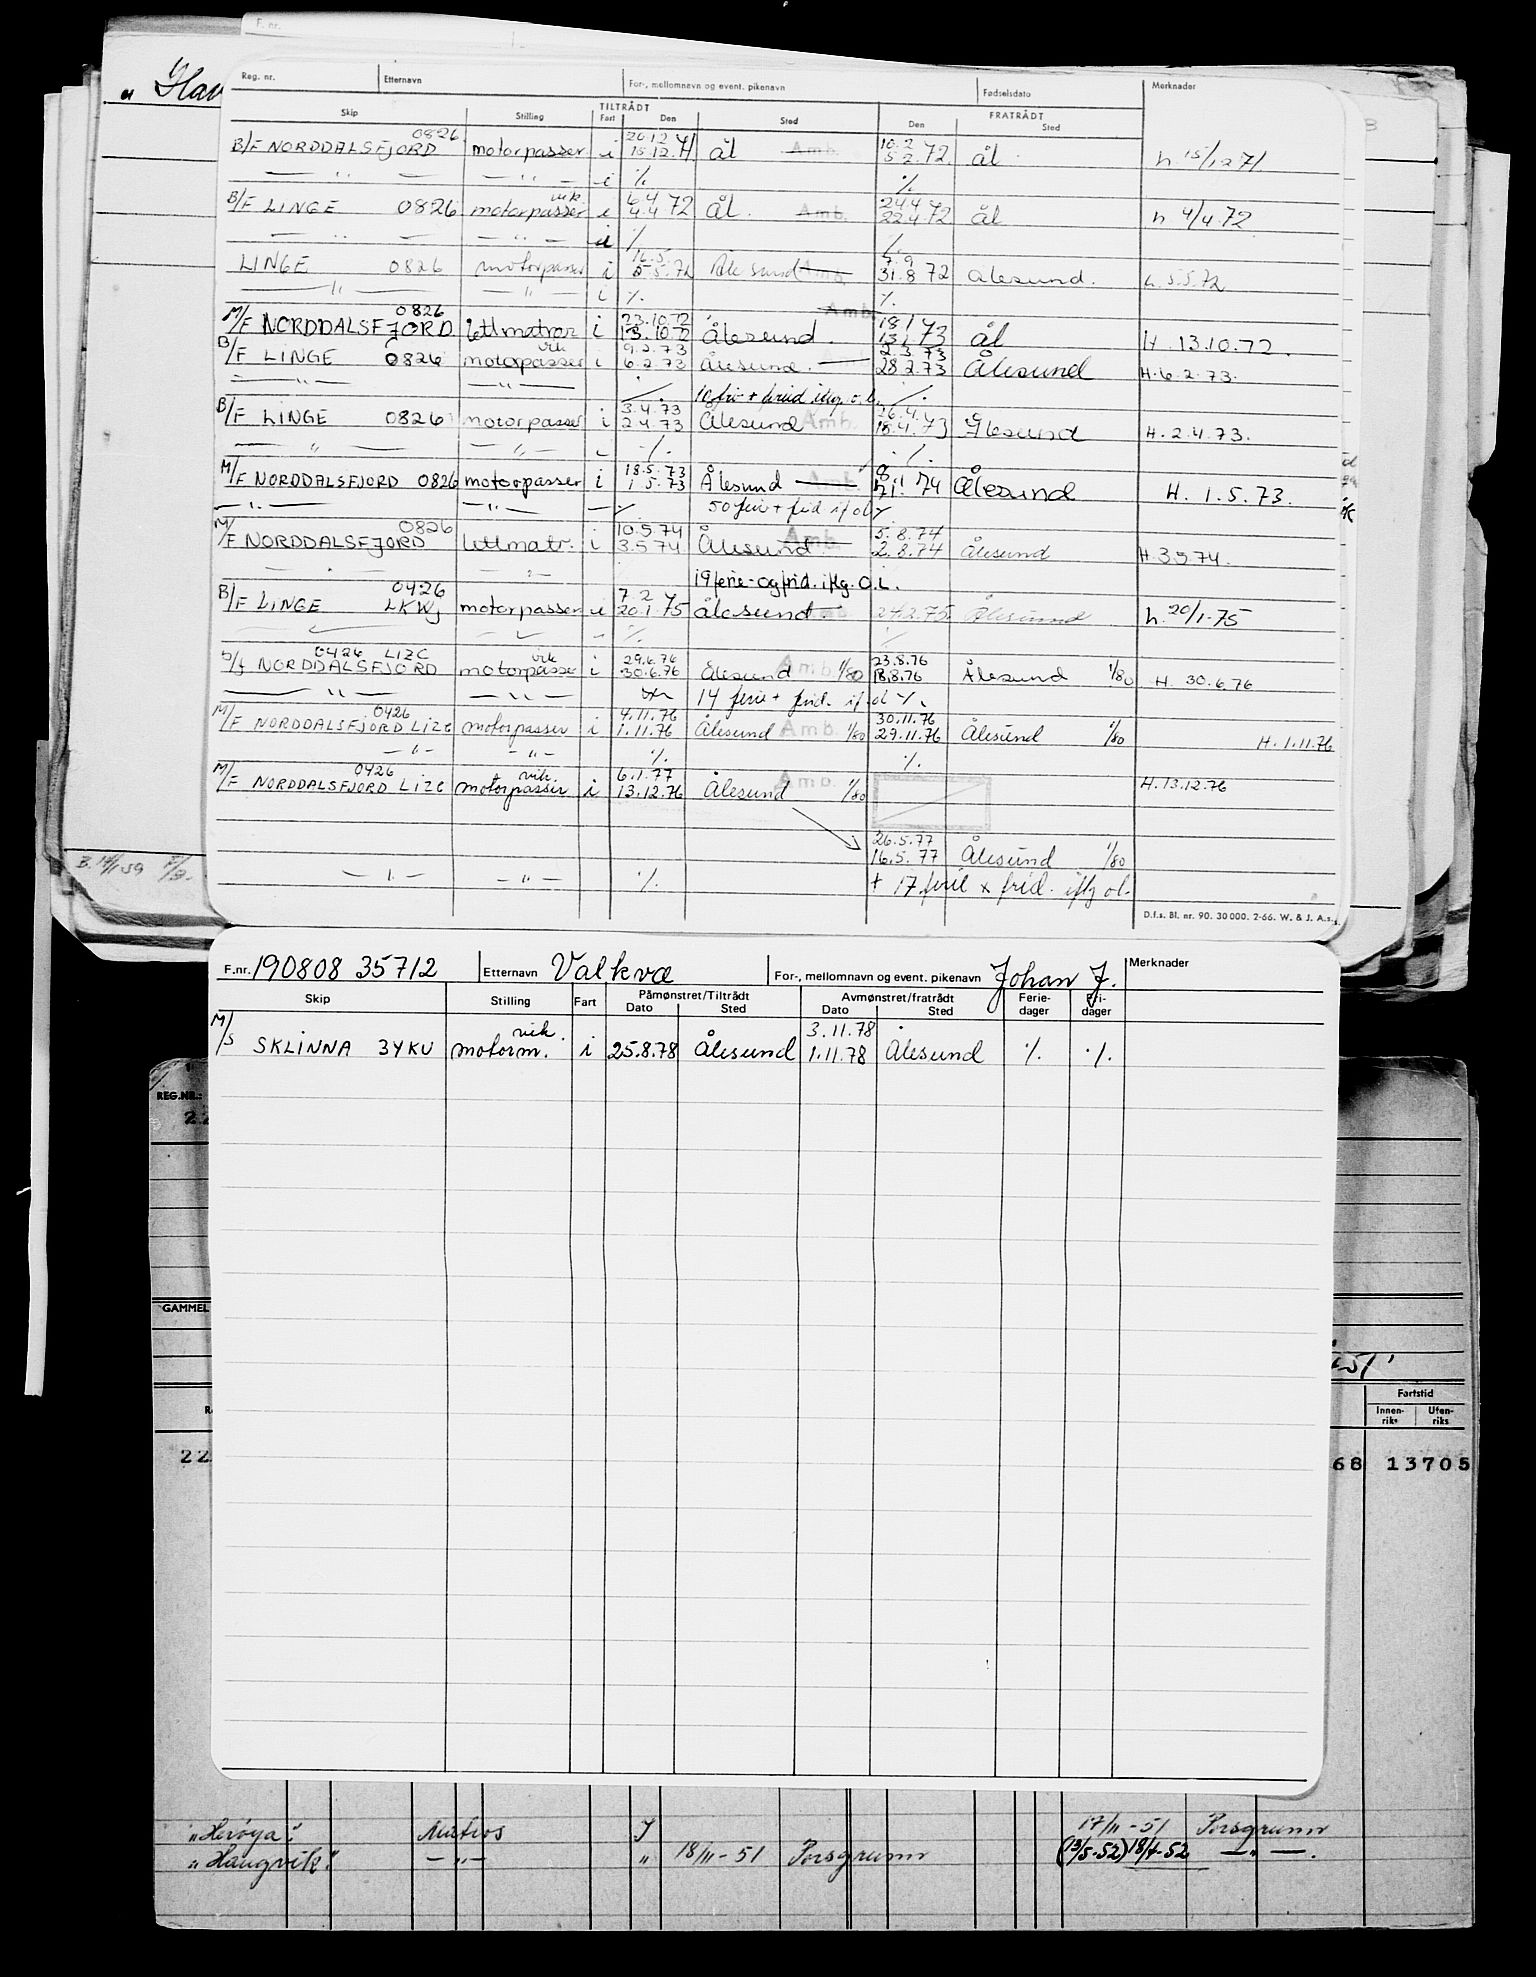 F. nr.
Reg. nr. Etternavn For-, mellomnavn og event. pikenavn Fødselsdato Merknader
TILTRÅDT FRATRÅDT
Skip Stilling Fart Den Sted Den Sted
0826 20.12 10.2
B/F NORDDALSFJORD motorpasser i 15.12.71 ål Amb. 5.2.72 ål h. 15/12 71
— " — — " — i % %
vik. 6.4 24.4
B/F LINGE 0826 motorpasser i 4.4 72 ål. Amb. 22.4.72 ål h. 4/4.72
— " — — " — i % %
16.5. 7.9
LINGE 0826 motorpasser i 5.5.72 Ålesund Amb. 31.8 72 Ålesund. h. 5.5.72
— " — — " — i % %
0826 23.10.72 Amb. 18.1
M/F NORDDALSFJORD lettmatros i 13.10.72 Ålesund. 13.1.73 ål H. 13.10.72.
vik 9.2.73 2.3.73
B/F LINGE 0826 motorpasser i 6.2.73 Ålesund. 28.2.73 Ålesund H. 6.2.73.
— " — — " — % %
3.4.73 26.4.
B/F LINGE 0826 motorpasser i 2.4.73 Ålesund Amb. 18.4.73 Ålesund H. 2.4.73.
— " — — " — %  %
18.5.73 8.1
M/F NORDDALSFJORD 0826 motorpasser i 1.5.73 Ålesund Amb. 74 Ålesund H. 1.5.73.
— " — — " — 50 ferie + frid
0826 10.5.74 5.8.74
M/F NORDDALSFJORD lettmatr. i 3.5.74 Ålesund Amb. 2.8.74 Ålesund H. 3.5.74.
19 ferie- og frid. iflg. O.L.
0426 7.2
B/F LINGE LKWJ motorpasser i 20.1.75 Ålesund Amb. 24.2.75. Ålesund h. 20/1-75
% %
0426 LIZC vik 29.6.76 23.8.76
NORDDALSFJORD motorpasser i 30.6.76 Ålesund Amb. 1/80 18.8.76 Ålesund 1/80 H. 30.6.76
— " — — " — 14 ferie + frid.
0426 4.11.76 30.11.76
M/F NORDDALSFJORD LIZC motorpasser i 1.11.76 Ålesund Amb. 1/80 29.11.76 Ålesund 1/80 H. 1.11.76
— " — — " — % %
0426 vik. 6.1.77
M/F NORDDALSFJORD LIZC motorpasser i 13.12.76 Ålesund Amb. 1/80 H. 13.12.76
26.5.77
16.5.77 Ålesund 1/80
— " — — " — % + 17 ferie x frid. iflg ol.
D.f.s. Bl. nr. 90. 30 000. 2-66. W. & J. A.s.
F.nr. 190808 35712 Etternavn Valkvæ For-, mellomnavn og event. pikenavn Johan J. Merknader
Skip Stilling Fart Påmønstret/Tiltrådt Avmønstret/fratrådt Ferie- Fri-
Dato Sted Dato Sted dager dager
vik. 3.11.78
M/S SKLINNA 3YKU motorm. i 25.8.78 Ålesund 1.11.78 Ålesund % %
REG.NR.:
GAMMEL
Fartstid
Innen- Uten-
riks riks
22 68 13705
"Herøya" Matros I 17/11-51 Porsgrunn
"Haugvik" — " — " 18/11-51 Porsgrunn (13/5-52) 18/4-52 — " —.